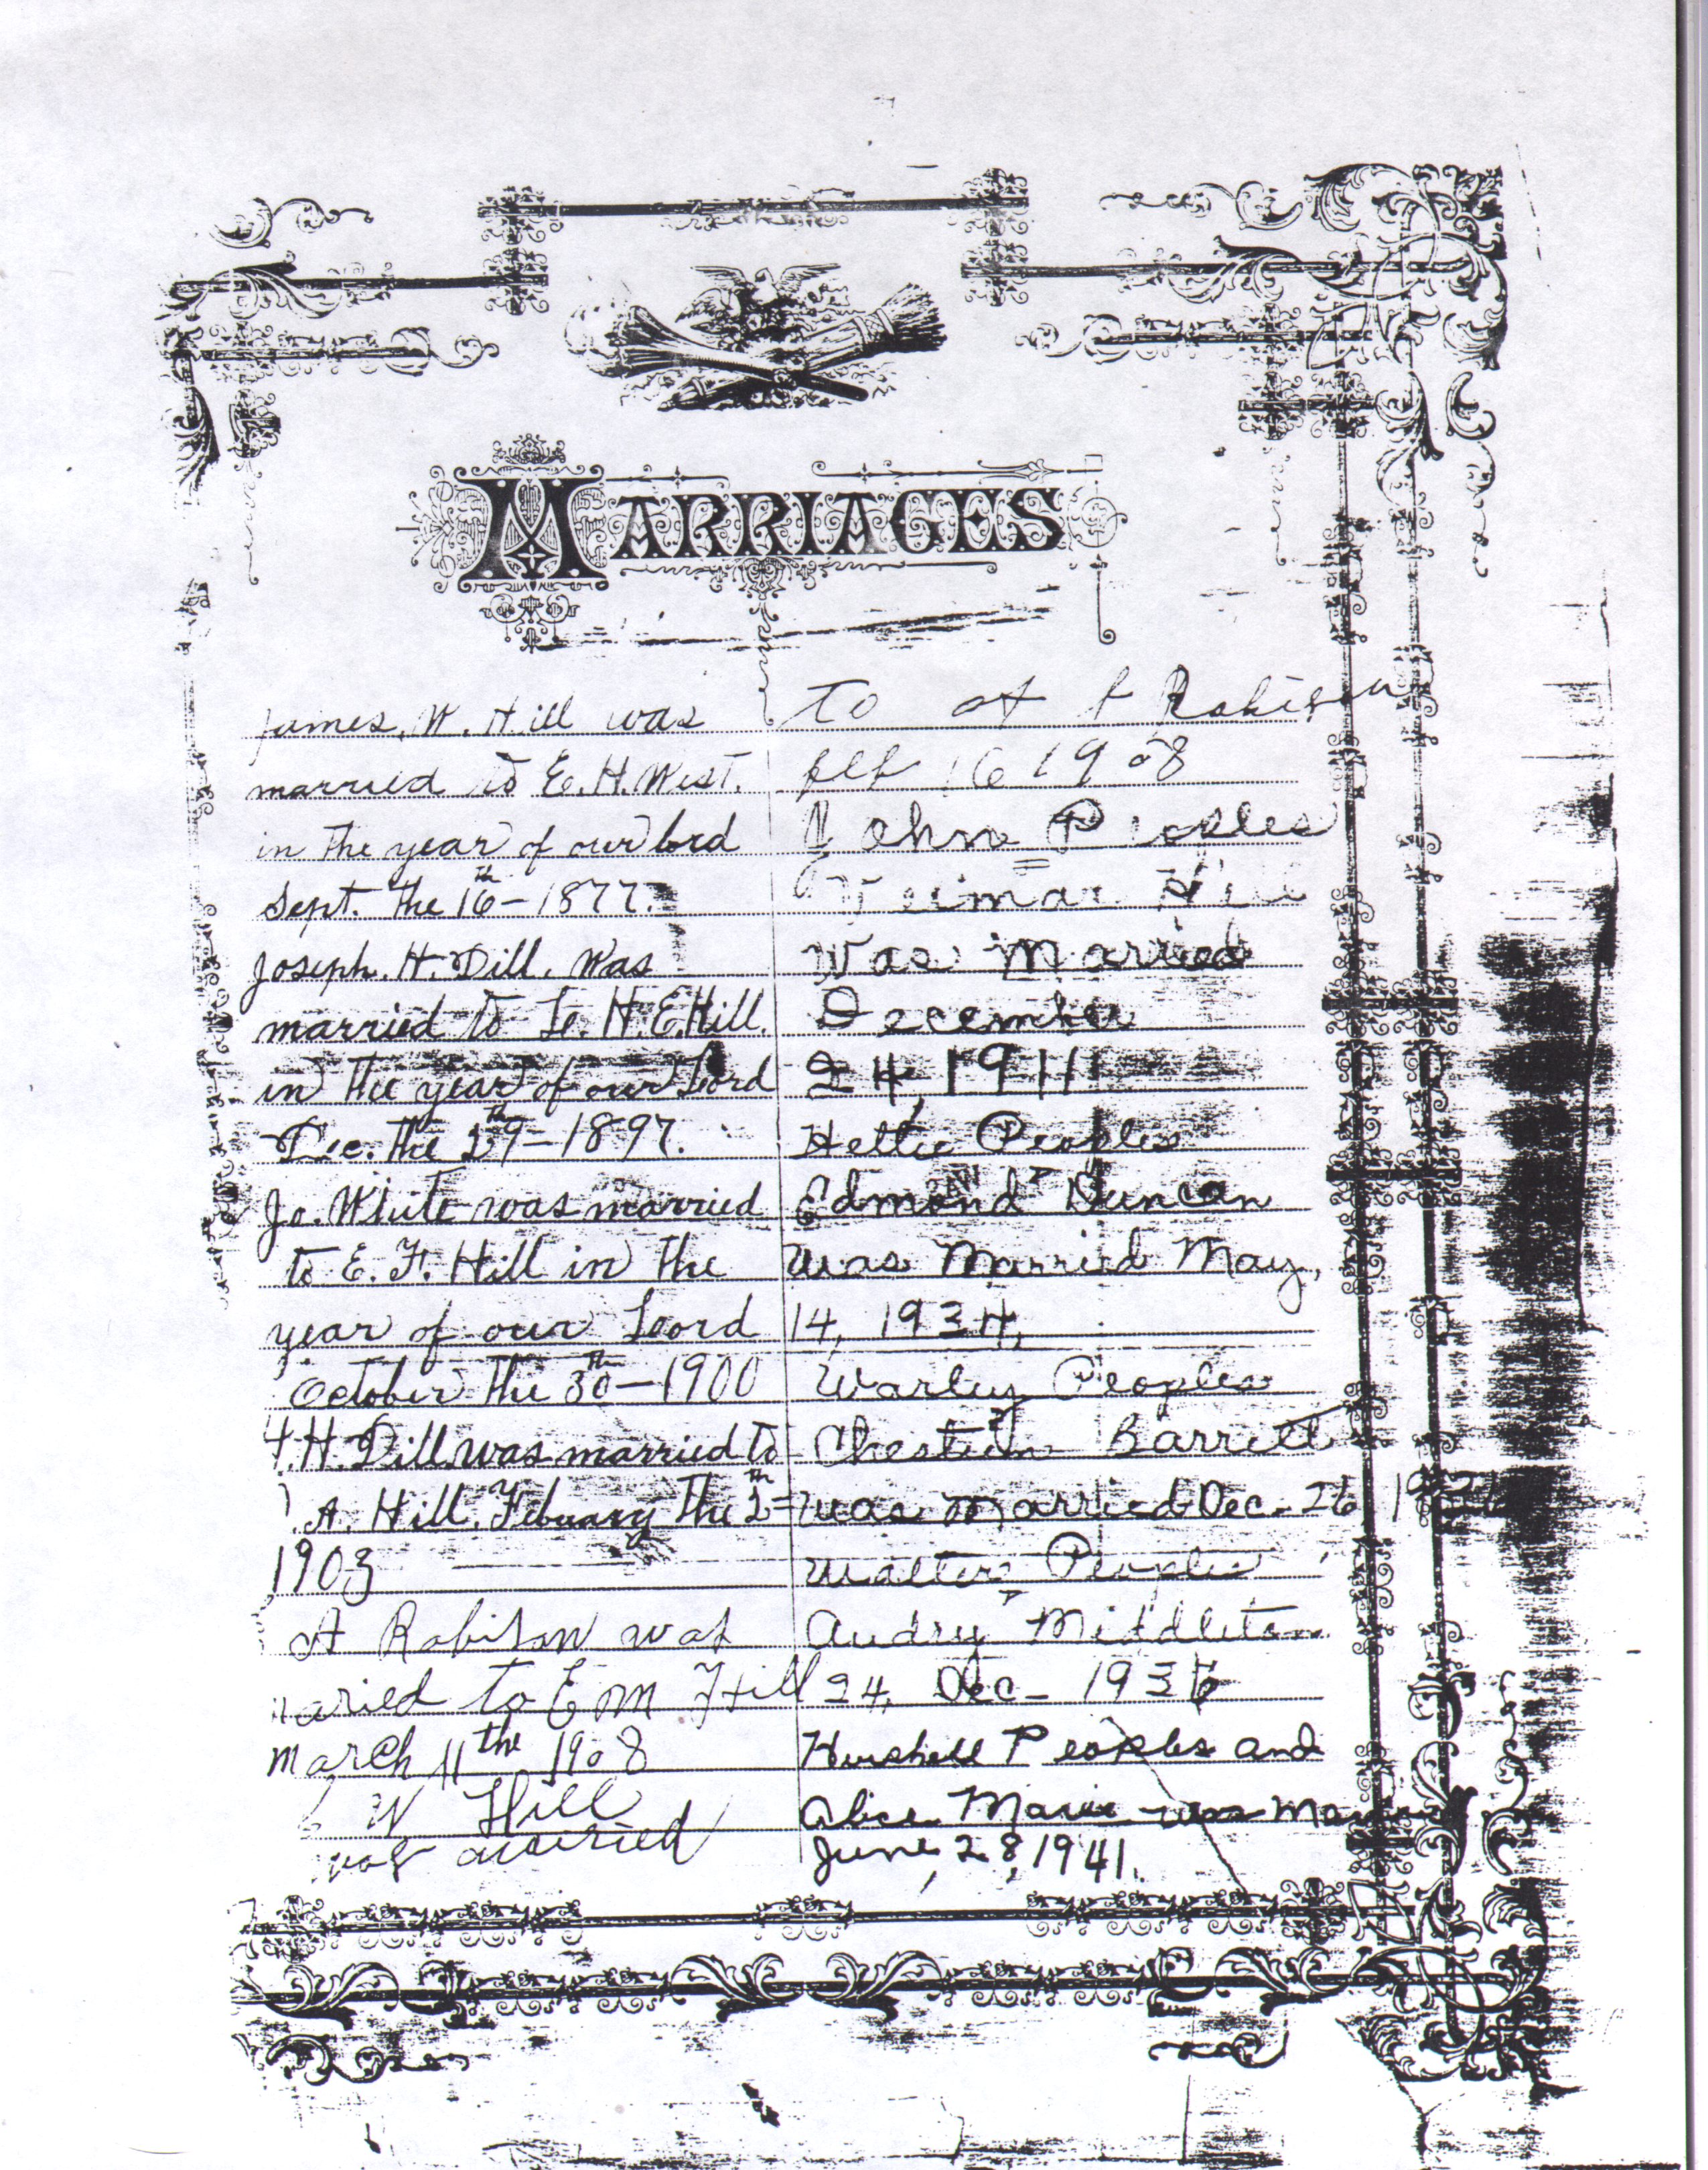 MARRIAGES
James. W. Hill was
married to E. H. West.
in the year of our lord
Sept. the 16th - 1877.
Joseph. H. Dill. Was
married to L. H. E. Hill.
in the year of our Lord
Dec. the 29th - 1897.
Jo. White was married
to E. F. Hill in the
year of our Lord
October the 30th - 1900
H. Dill was married to
A. Hill, Febuary the 2th =
1903
A Robison was
aried to E M Hill
march 11the 1908
W Hill
was maried
to Robison
feb 16 1908
John Peoples
Hill
Was Married
December
24, 1911
Hettie Peoples
Edmond Duncan
was Married May,
14, 1934,
Warley Peoples
Barrett
was married Dec- 26
Walter Peoples
Audry Middleton
24, Dec- 193
Hershell Peoples and
Alice Marie was
June, 28, 1941.